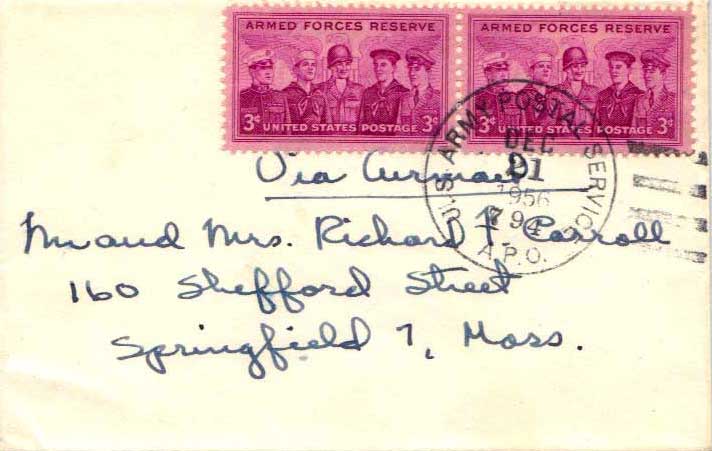 ARMED FORCES RESERVE
3¢ UNITED STATES POSTAGE 3¢
ARMED FORCES RESERVE
3¢ UNITED STATES POSTAGE 3¢
U.S. ARMY POSTAL SERVICE
DEC
21
1956
794
A.P.O.
Via Airmail
Mr and Mrs. Richard F. Carroll
160 Shefford Street
Springfield 7, Mass.